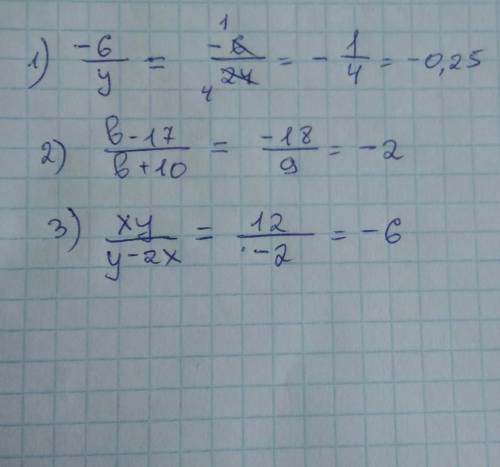 1) -6/y = -6/24 = -1/4 = -0,25
2) (в-17)/(в+10) = -18/9 = -2
3) xy/(y-2x) = 12/-2 = -6